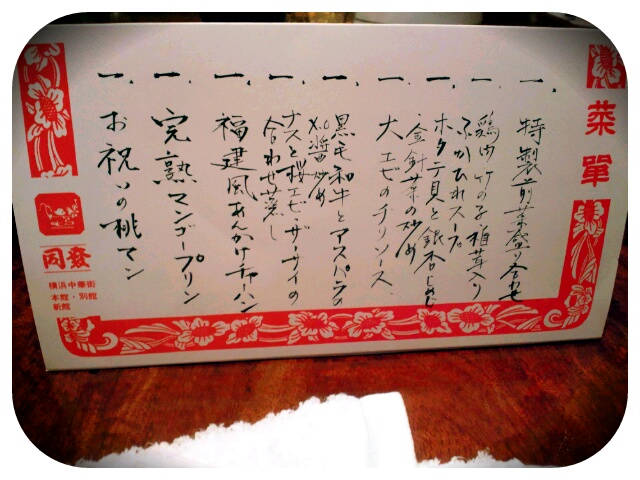 菜單
一、特製前菜盛り合わせ
一、鶏肉竹の子椎茸入り
ふかひれスープ
一、ホタテ貝と銀杏しめじ
金針菜の炒め
一、大エビのチリソース
一、黒毛和牛とアスパラの
XO醤炒め
一、ナスと桜エビ・ザーサイの
合わせ蒸し
一、福建風あんかけチャーハン
一、完熟マンゴープリン
一、お祝いの桃マン
同發
横浜中華街
本館・別館
新館